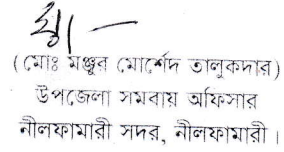 (মোঃ মঞ্জুর মোর্শেদ তালুকদার)
উপজেলা সমবায় অফিসার
নীলফামারী সদর, নীলফামারী।